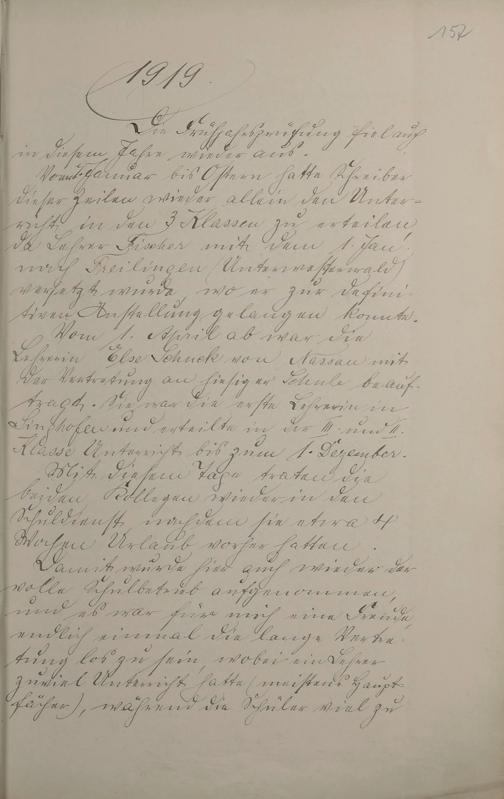 157
1919.
Die Frühjahrsprüfung fiel auch
in diesem Jahre wieder aus.
Vom 1. Januar bis Ostern hatte Schreiber
dieser Zeilen wieder allein den Unter-
richt in den 3 Klassen zu erteilen,
da Lehrer Fischer mit dem 1. Jan.
nach Freilingen (Unterwesterwald)
versetzt wurde, wo er zur defini-
tiven Anstellung gelangen konnte.
Vom 1. April ab war die
Lehrerin Else Schuck von Nassau mit
der Vertretung an hiesiger Schule beauf-
tragt. Sie war die erste Lehrerin in
und erteilte in der III. und II.
Klasse Unterricht bis zum 1. Dezember.
Mit diesem Tage traten die
beiden Kollegen wieder in den
Schuldienst, nachdem sie etwa 4
Wochen Urlaub vorher hatten.
Damit wurde hier auch wieder der
volle Schulbetrieb aufgenommen,
und es war für mich eine Freude,
endlich einmal die lange Vertre-
tung los zu sein, wobei ein Lehrer
zuviel Unterricht hatte (meistens Haupt-
fächer), während die Schüler viel zu